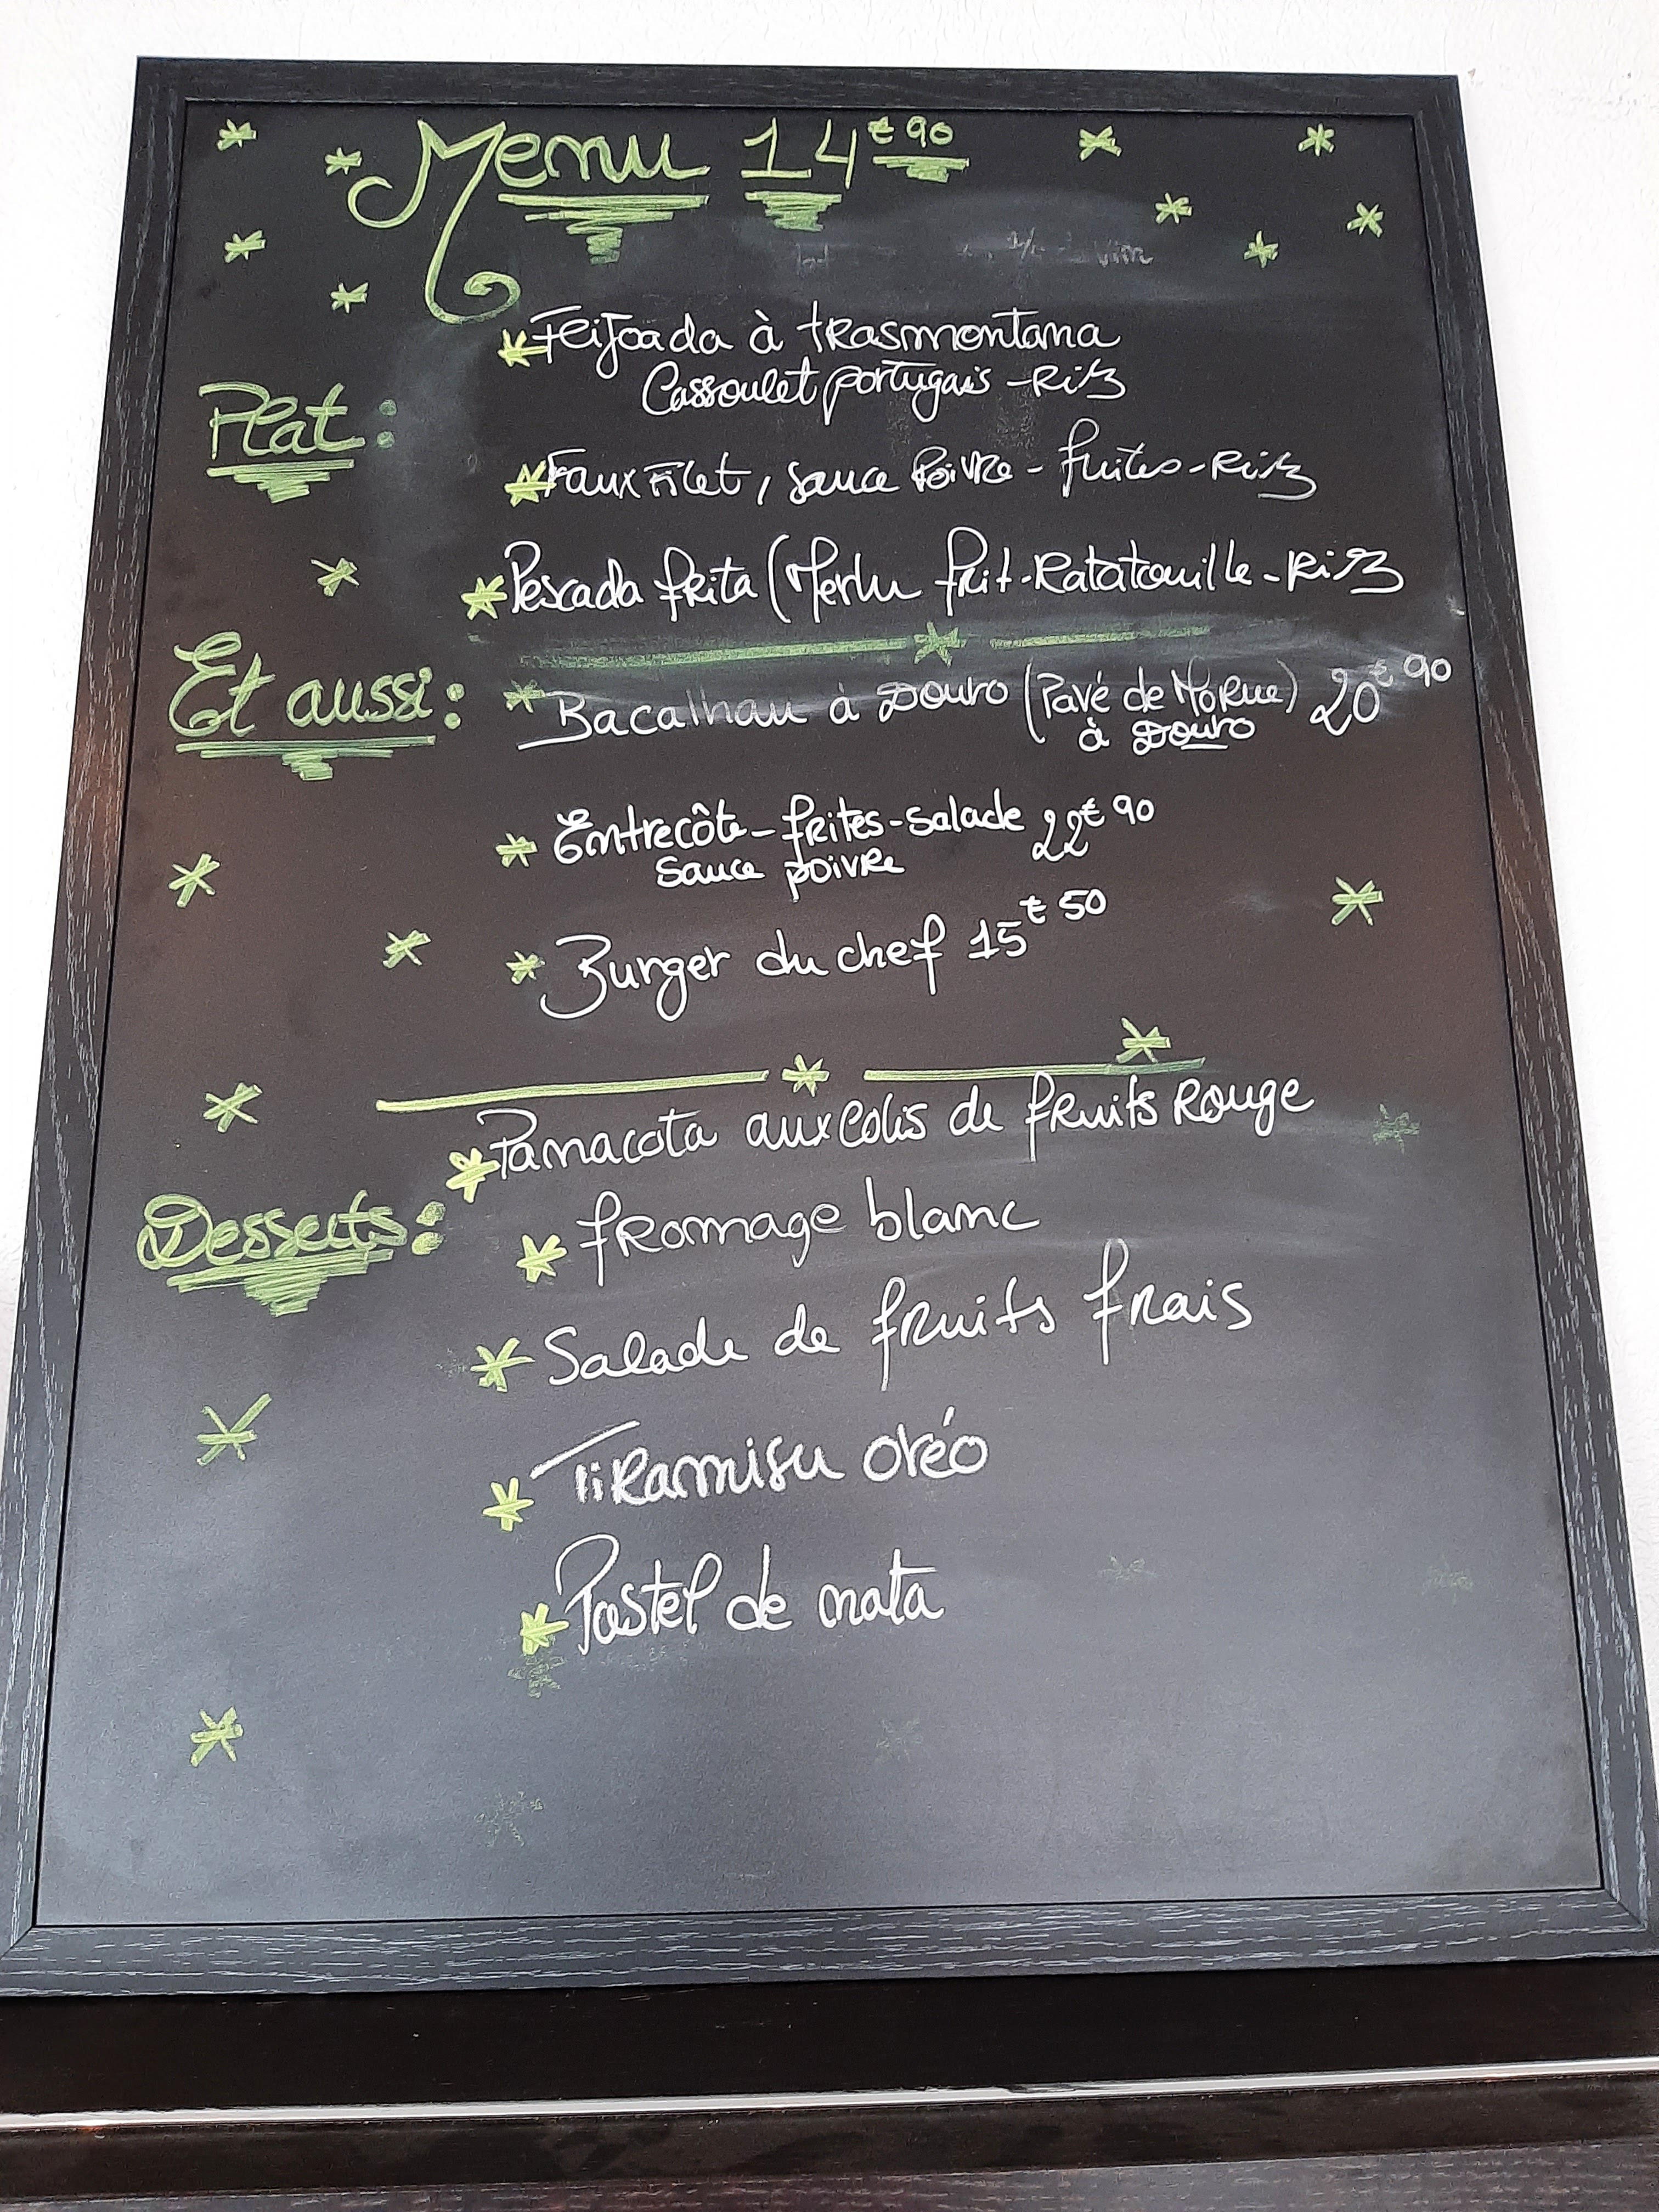 Menu 14€90
vin
Feijoada à trasmontana
Cassoulet portugais - Riz
Plat :
Faux Filet, sauce Poivre - frites - Riz
Pescada frita (Merlu frit - Ratatouille - Riz
Et aussi :
Bacalhau à Douro (Pavé de Morue) 20€90
à Douro
Entrecôte - frites - salade 22€90
sauce poivre
Burger du chef 15€50
Panacota aux colis de fruits Rouge
Desserts :
fromage blanc
Salade de fruits frais
Tiramisu oréo
Pastel de nata